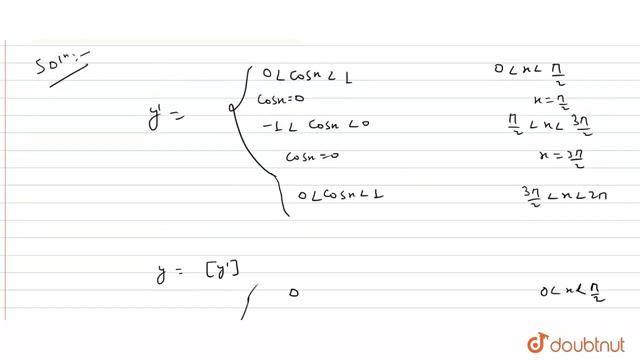 Solⁿ:-
0 < cosx < 1    0 < x < π/2
cosx=0    x = π/2
y' = -1 < cosx < 0    π/2 < x < 3π/2
cosx=0    x = 3π/2
0 < cosx < 1    3π/2 < x < 2π
y = [y']
0    0 < x < π/2
doubtnut